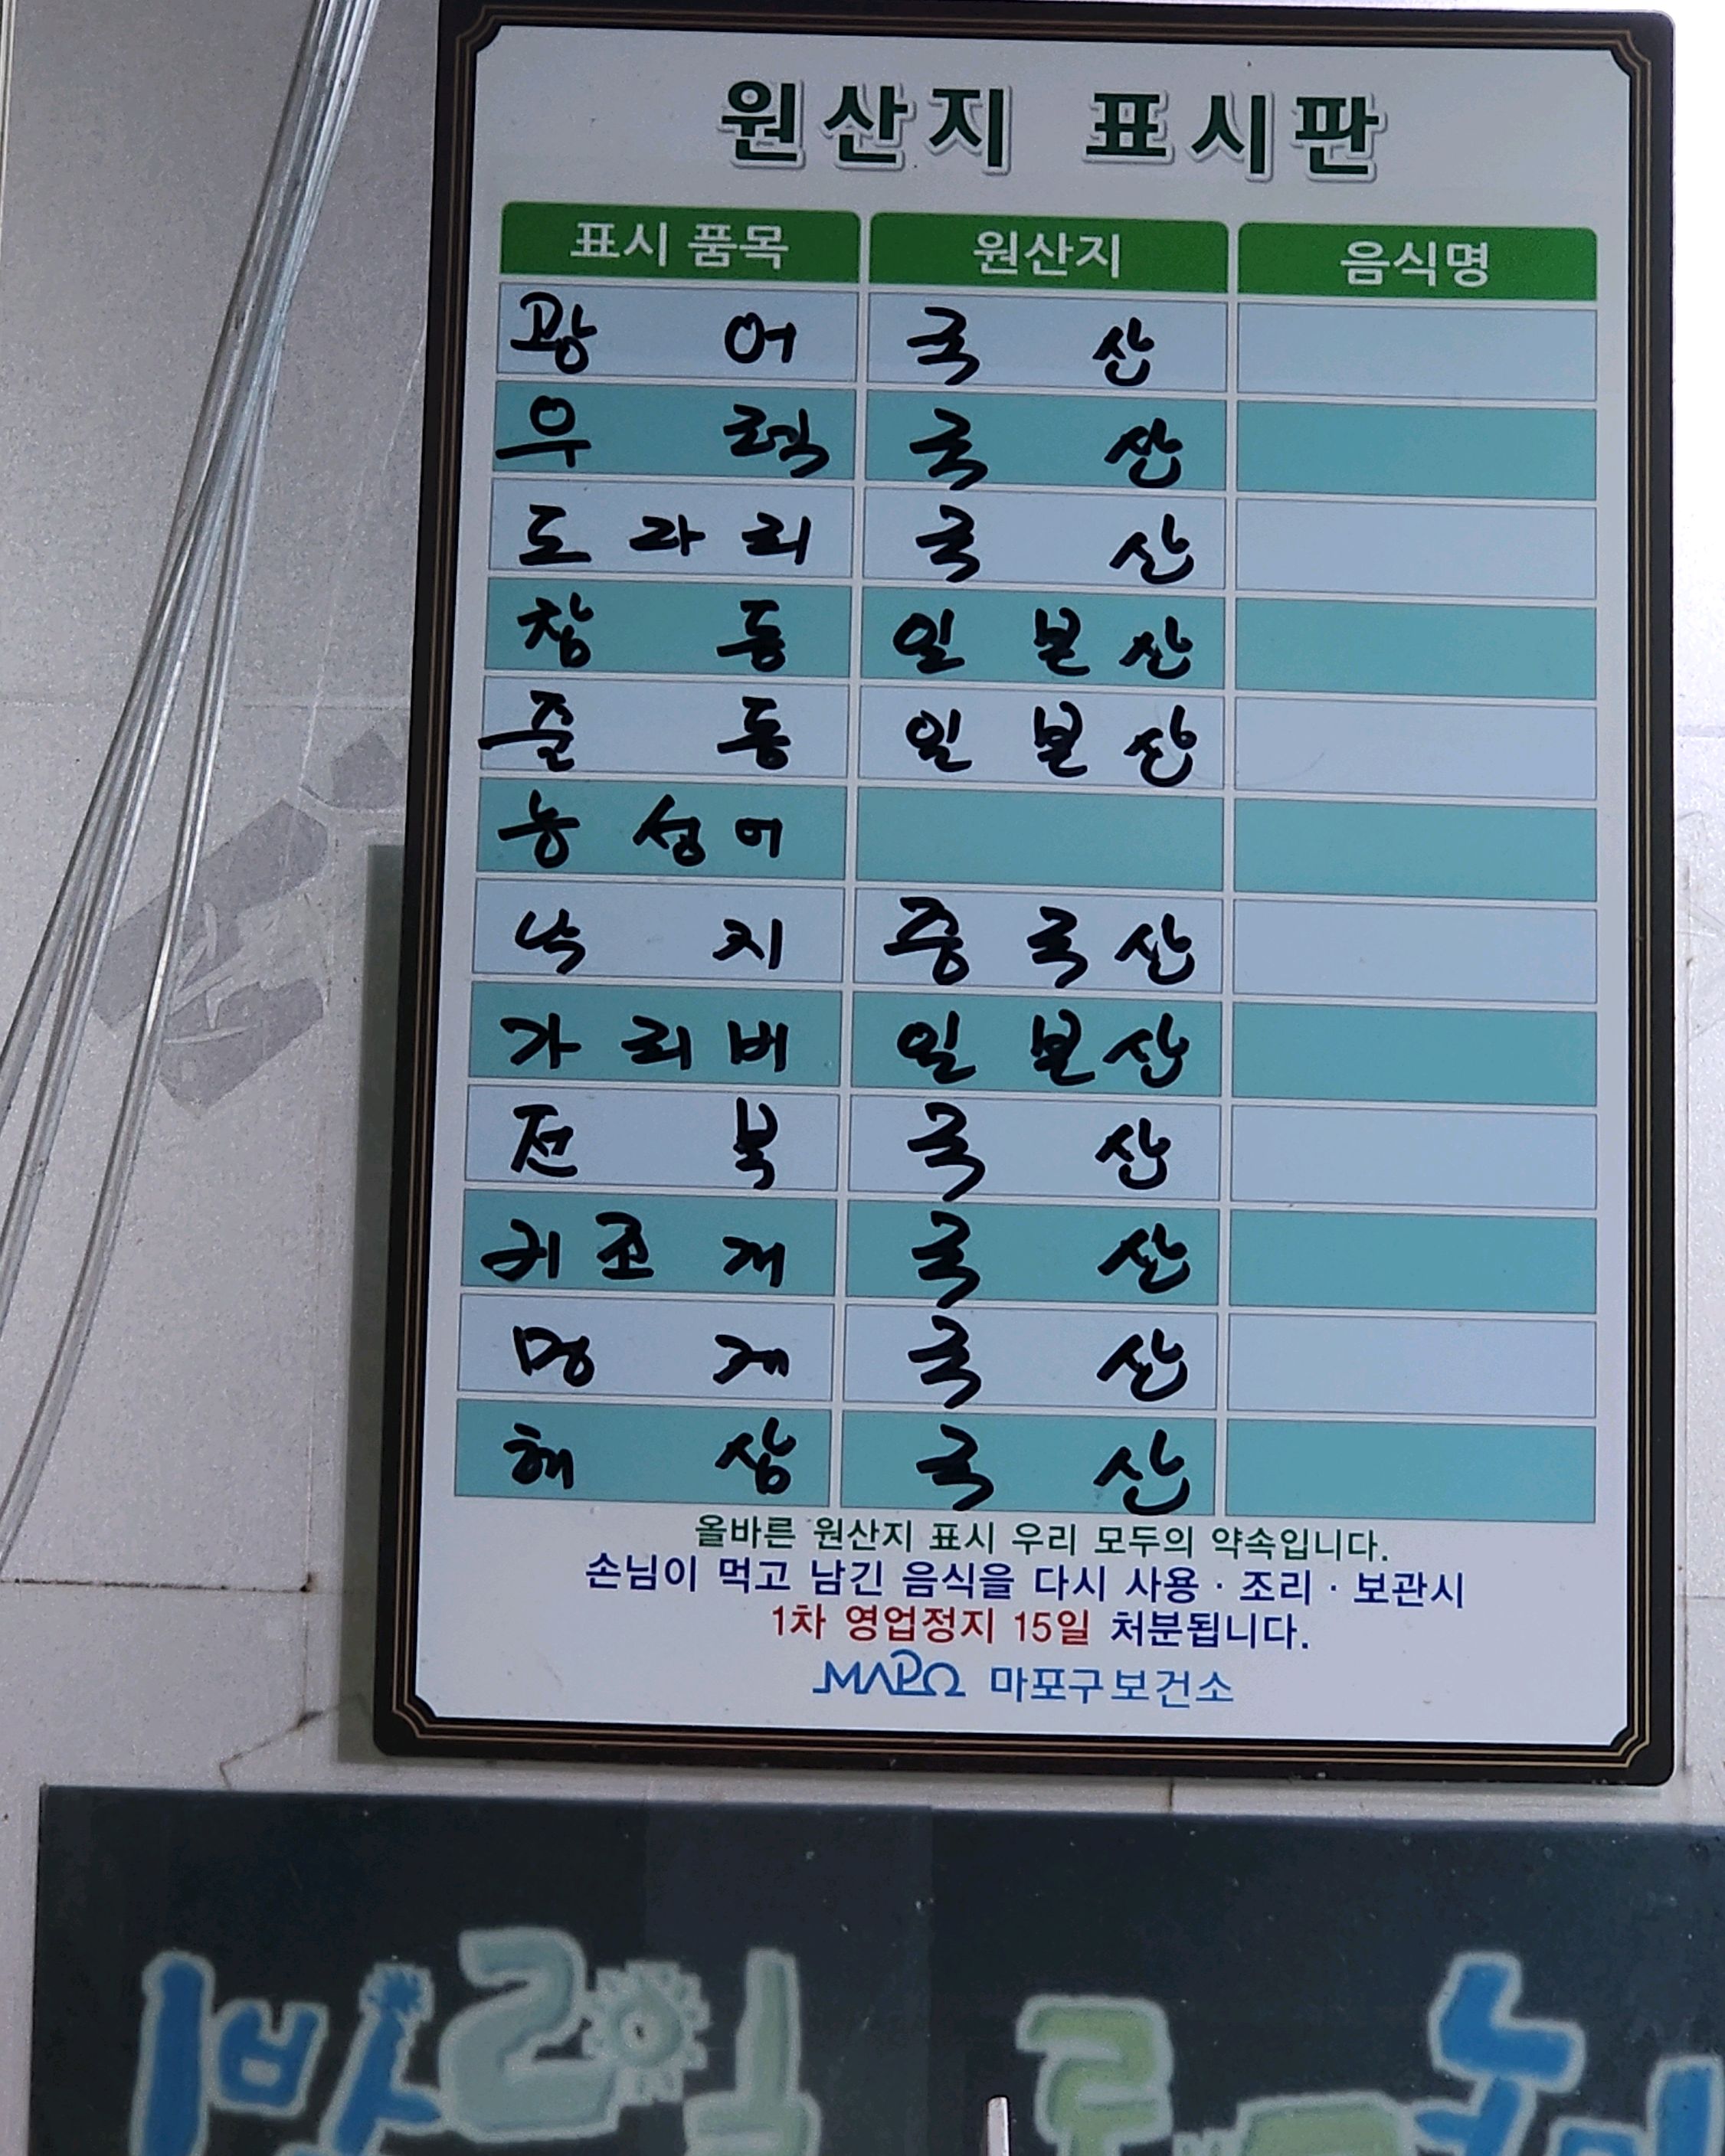 원산지 표시판
표시 품목 원산지 음식명
광어 국산
우럭 국산
도다리 국산
참돔 일본산
줄돔 일본산
농성어
낙치 중국산
가리비 일본산
전복 국산
키조개 국산
멍게 국산
해삼 국산
올바른 원산지 표시 우리 모두의 약속입니다.
손님이 먹고 남긴 음식을 다시 사용 · 조리 · 보관시
1차 영업정지 15일 처분됩니다.
MAPO 마포구보건소